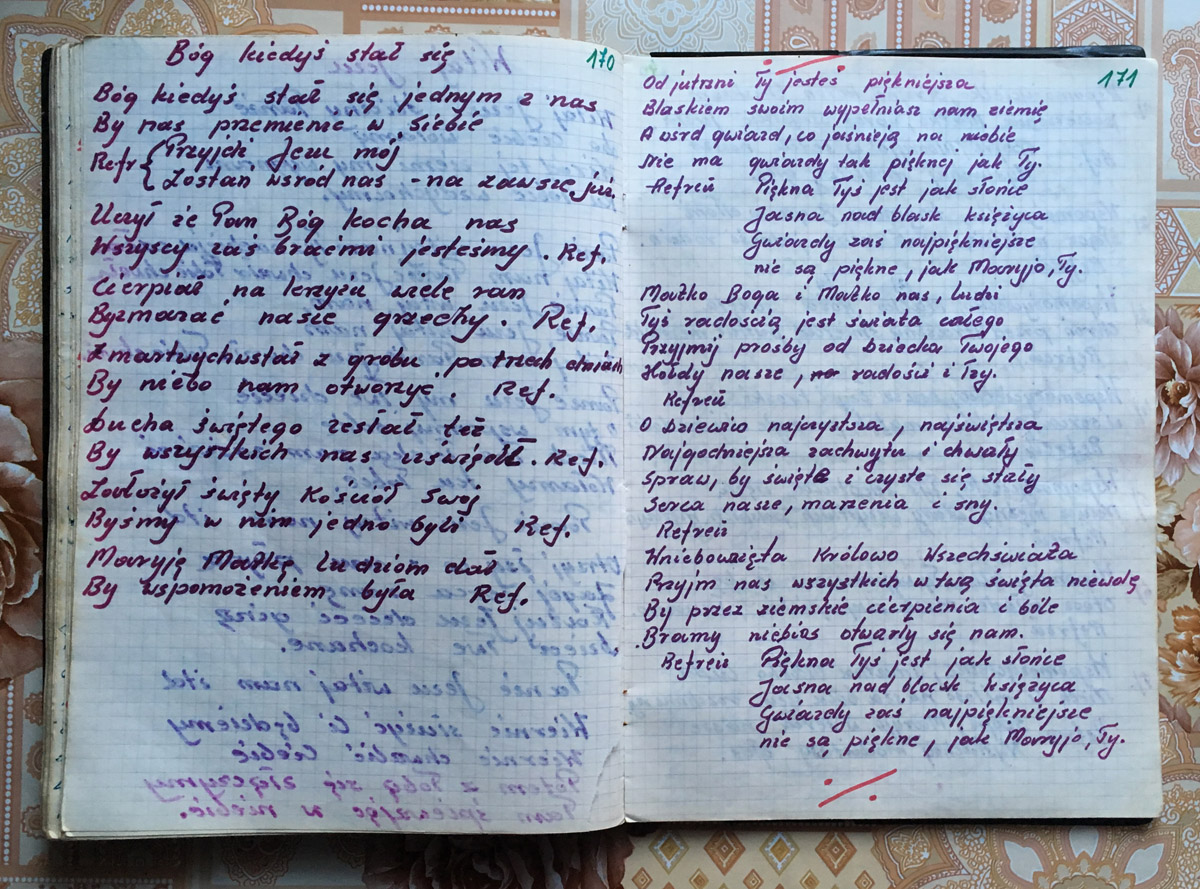 Bóg kiedyś stał się
170
Bóg kiedyś stał się jednym z nas
By nas przemienić w Siebie
Refr { Przyjdź Jezu mój
Zostań wśród nas - na zawsze już.
Uczył że Pan Bóg kocha nas
Wszyscy zaś braćmi jesteśmy. Ref.
Cierpiał na krzyżu wiele ran
By zmazać nasze grzechy. Ref.
Zmartwychwstał z grobu po trzech dniach
By niebo nam otworzyć. Ref.
Ducha świętego zesłał też
By wszystkich nas uświęcił. Ref.
Założył święty Kościół Swój
Byśmy w nim jedno byli Ref.
Maryję Matkę ludziom dał
By wspomożeniem była Ref.
171
Od jutrzni Ty jesteś piękniejsza
Blaskiem swoim wypełniasz nam ziemię
A wśrd gwiazd, co jaśnieją na niebie
Nie ma gwiazdy tak pięknej jak Ty.
Refreń Piękna Tyś jest jak słońce
Jasna nad blask księżyca
Gwiazdy zaś najpiękniejsze
nie są piękne, jak Maryjo, Ty.
Matko Boga i Matko nas, ludzi
Tyś radością jest świata całego
Przyjmij prośby od dziecka Twojego
Hołdy nasze, radości i łzy.
Refreń
O dziewico najczystsza, najświętsza
Najgodniejsza zachwytu i chwały
Spraw, by święte i czyste się stały
Serca nasze, marzenia i sny.
Refreń
Wniebowzięta Królowo Wszechświata
Przyjm nas wszystkich w twą święta niewolę
By przez ziemskie cierpienia i bóle
Bramy niebios otwarły się nam.
Refreń Piękna Tyś jest jak słońce
Jasna nad blask księżyca
Gwiazdy zaś najpiękniejsze
nie są piękne, jak Maryjo, Ty.